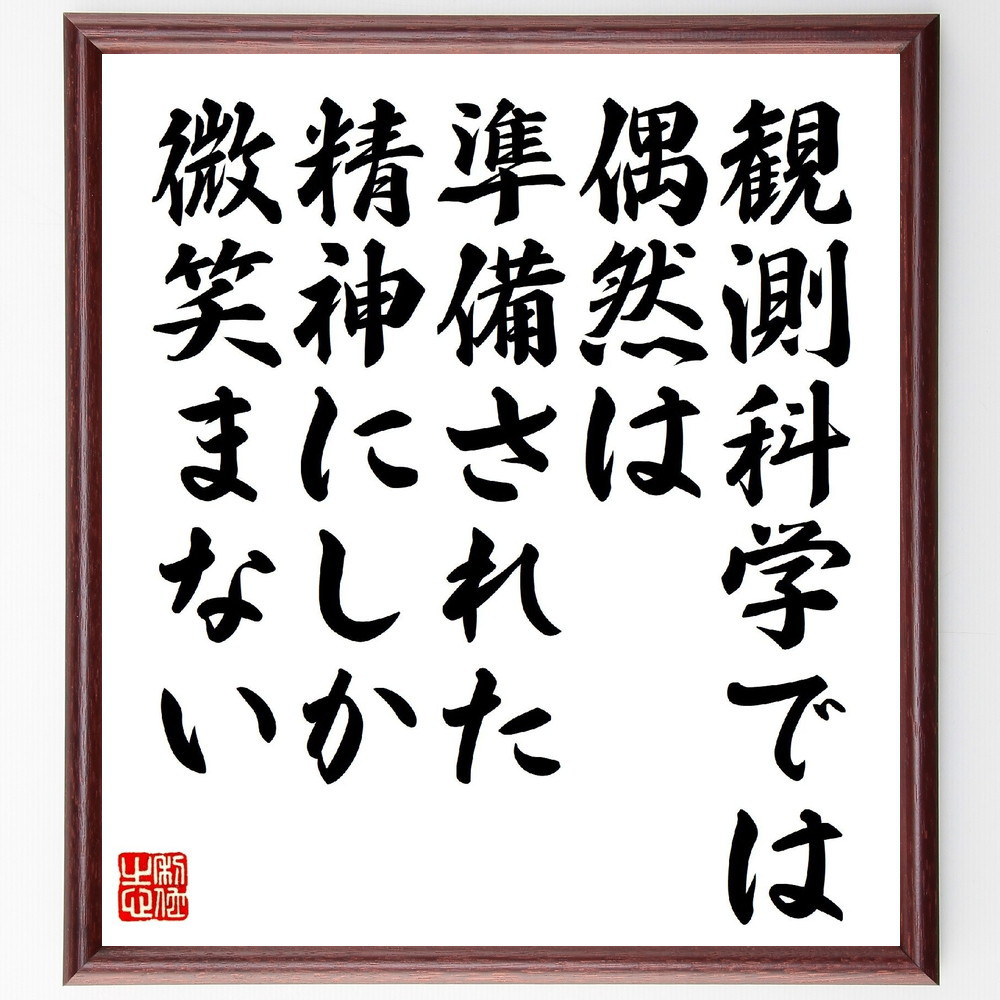 観測科学では
偶然は
準備された
精神にしか
微笑まない